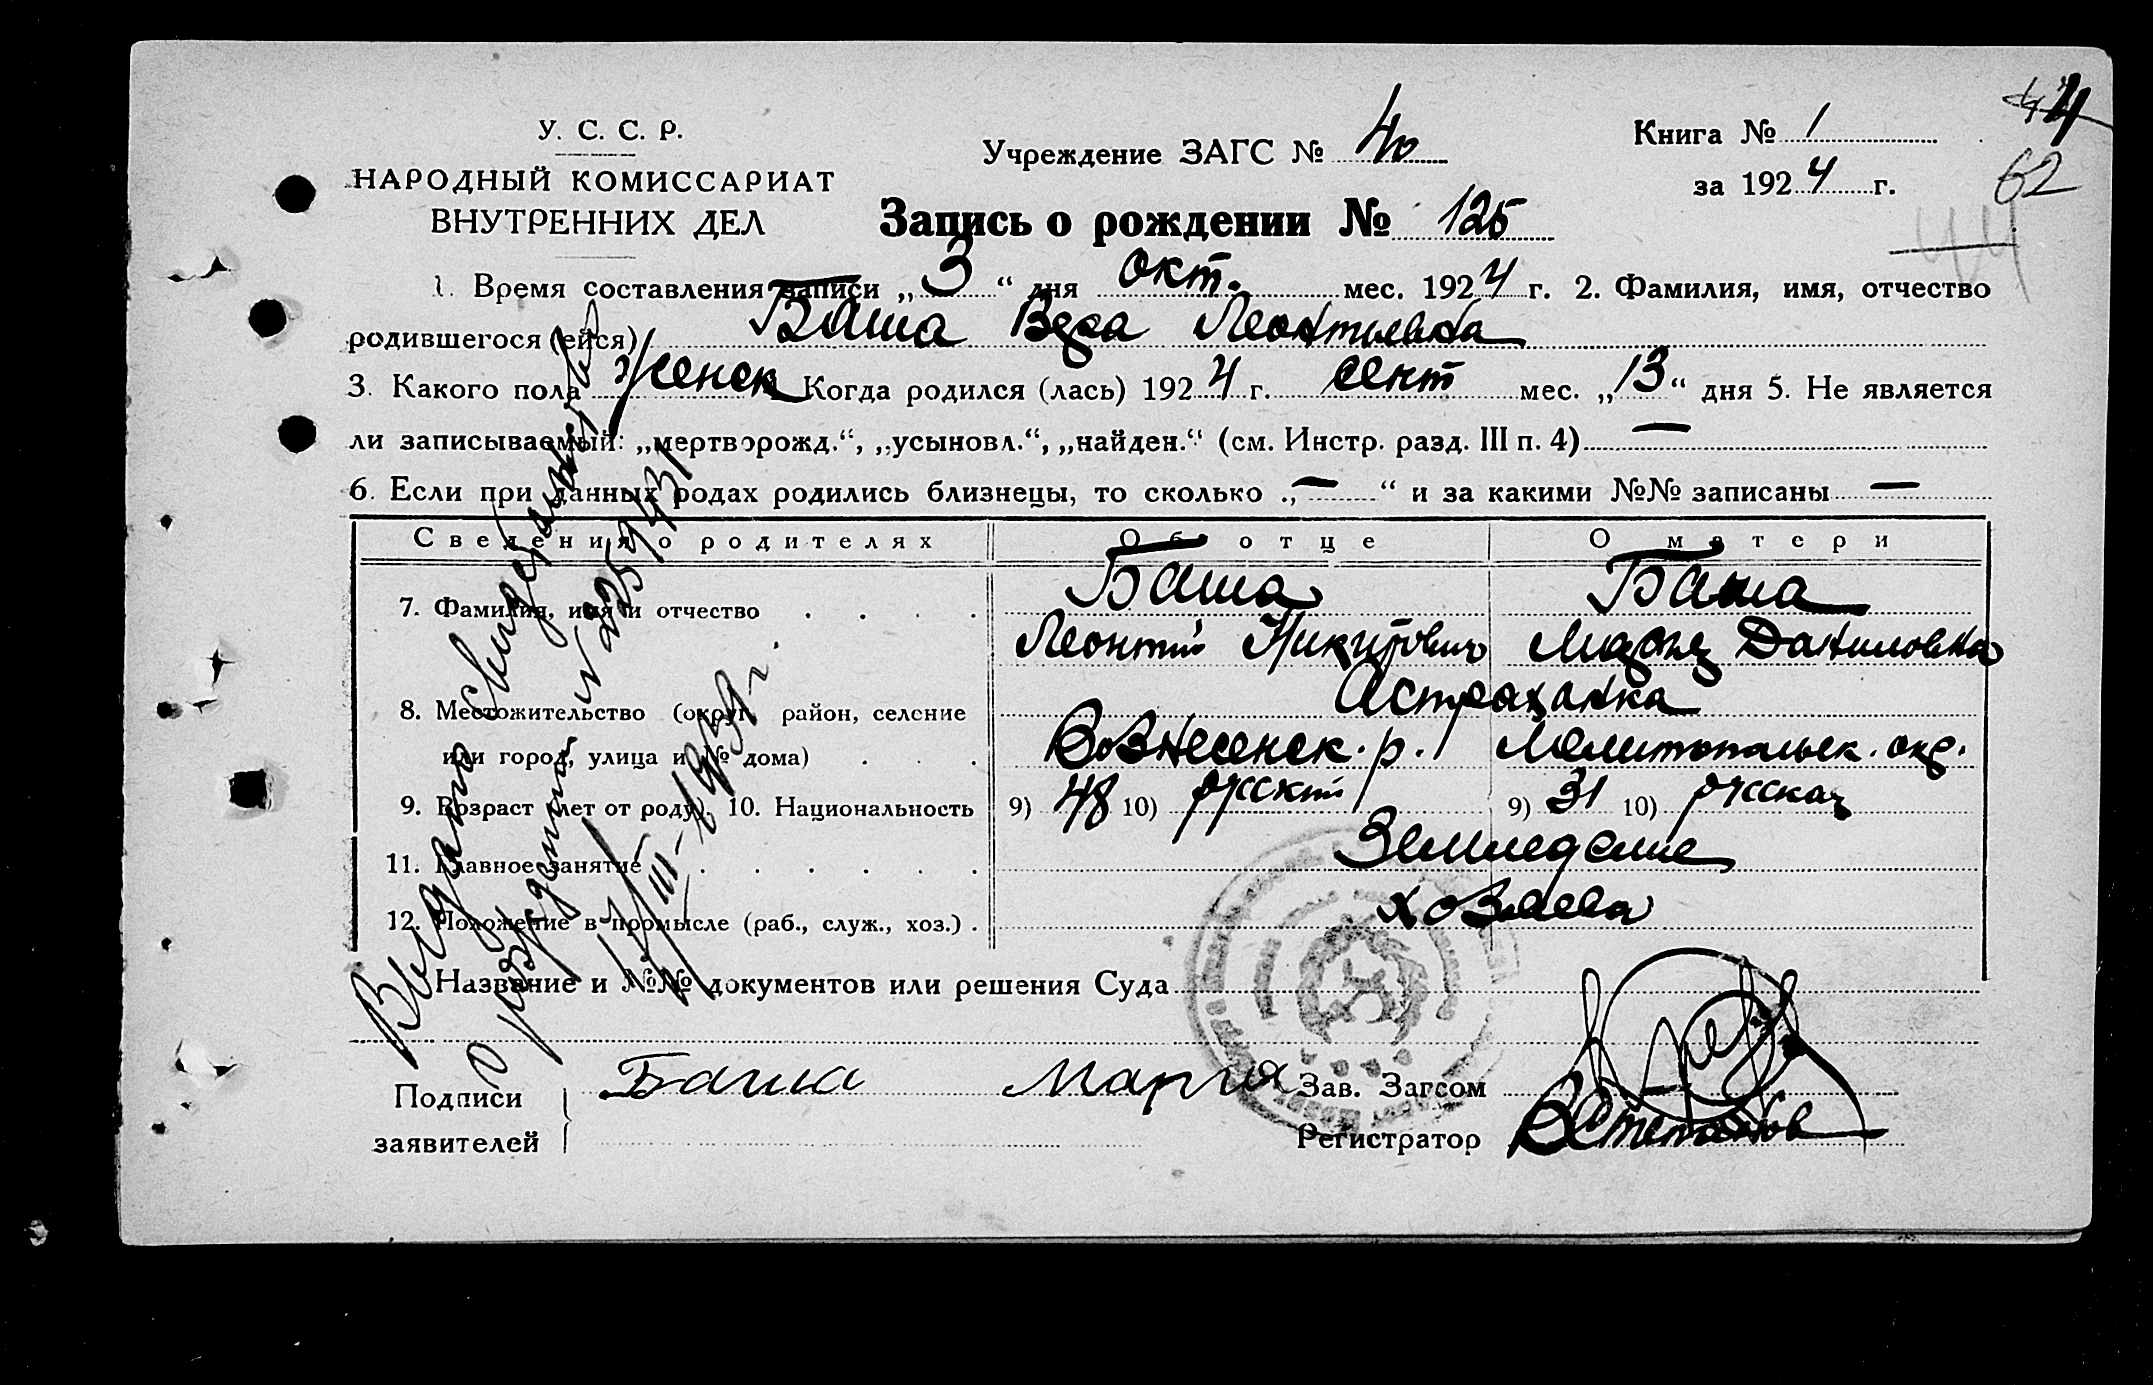 У. С. С. Р.
НАРОДНЫЙ КОМИССАРИАТ
ВНУТРЕННИХ ДЕЛ
Учреждение ЗАГС № 40
Книга № 1
за 1924 г.
62
44
Запись о рождении № 125
1. Время составления записи „3“ дня окт. мес. 1924 г. 2. Фамилия, имя, отчество
родившегося (ейся) Баша Вера Леонтьевна
3. Какого пола женск Когда родился (лась) 1924 г. сент мес. „13“ дня 5. Не является
ли записываемый: „мертворожд.“, „усыновл.“, „найден.“ (см. Инстр. разд. III п. 4) —
6. Если при данных родах родились близнецы, то сколько „—“ и за какими №№ записаны —
Сведения о родителях Об отце О матери
7. Фамилия, имя и отчество . . . . Баша Баша
Леонтий Никитович Мария Даниловна
8. Местожительство (округ, район, селение Астраханка
или город, улица и № дома) . . . Вознесенск. р. Мелитопольск. окр.
9. Возраст (лет от роду). 10. Национальность 9) 48 10) русский 9) 31 10) русская
11. Главное занятие . . . . . . Земледелие
12. Положение в промысле (раб., служ., хоз.) . хозяева
Название и №№ документов или решения Суда
Подписи
заявителей
Баша Мария
Зав. Загсом
Регистратор ВСтепанов
Выдано свидетельство
о рождении №